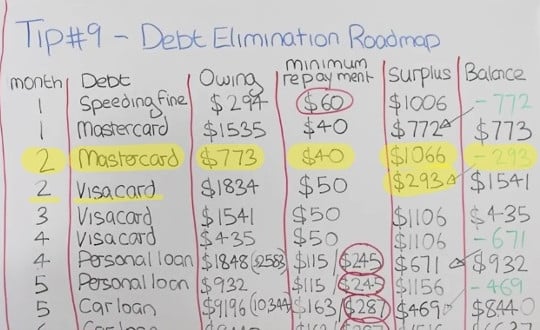 Tip#9 - Debt Elimination Roadmap
month Debt Owing minimum repayment Surplus Balance
1 Speeding fine $294 $60 $1006 -772
1 Mastercard $1535 $40 $772 $773
2 Mastercard $773 $40 $1066 -293
2 Visacard $1834 $50 $293 $1541
3 Visacard $1541 $50 $1106 $435
4 Visacard $435 $50 $1106 -671
4 Personal loan $1848 (2583) $115/$245 $671 $932
5 Personal loan $932 $115/$245 $1156 -469
5 Car loan $9196 (10344) $163/$287 $469 $8440